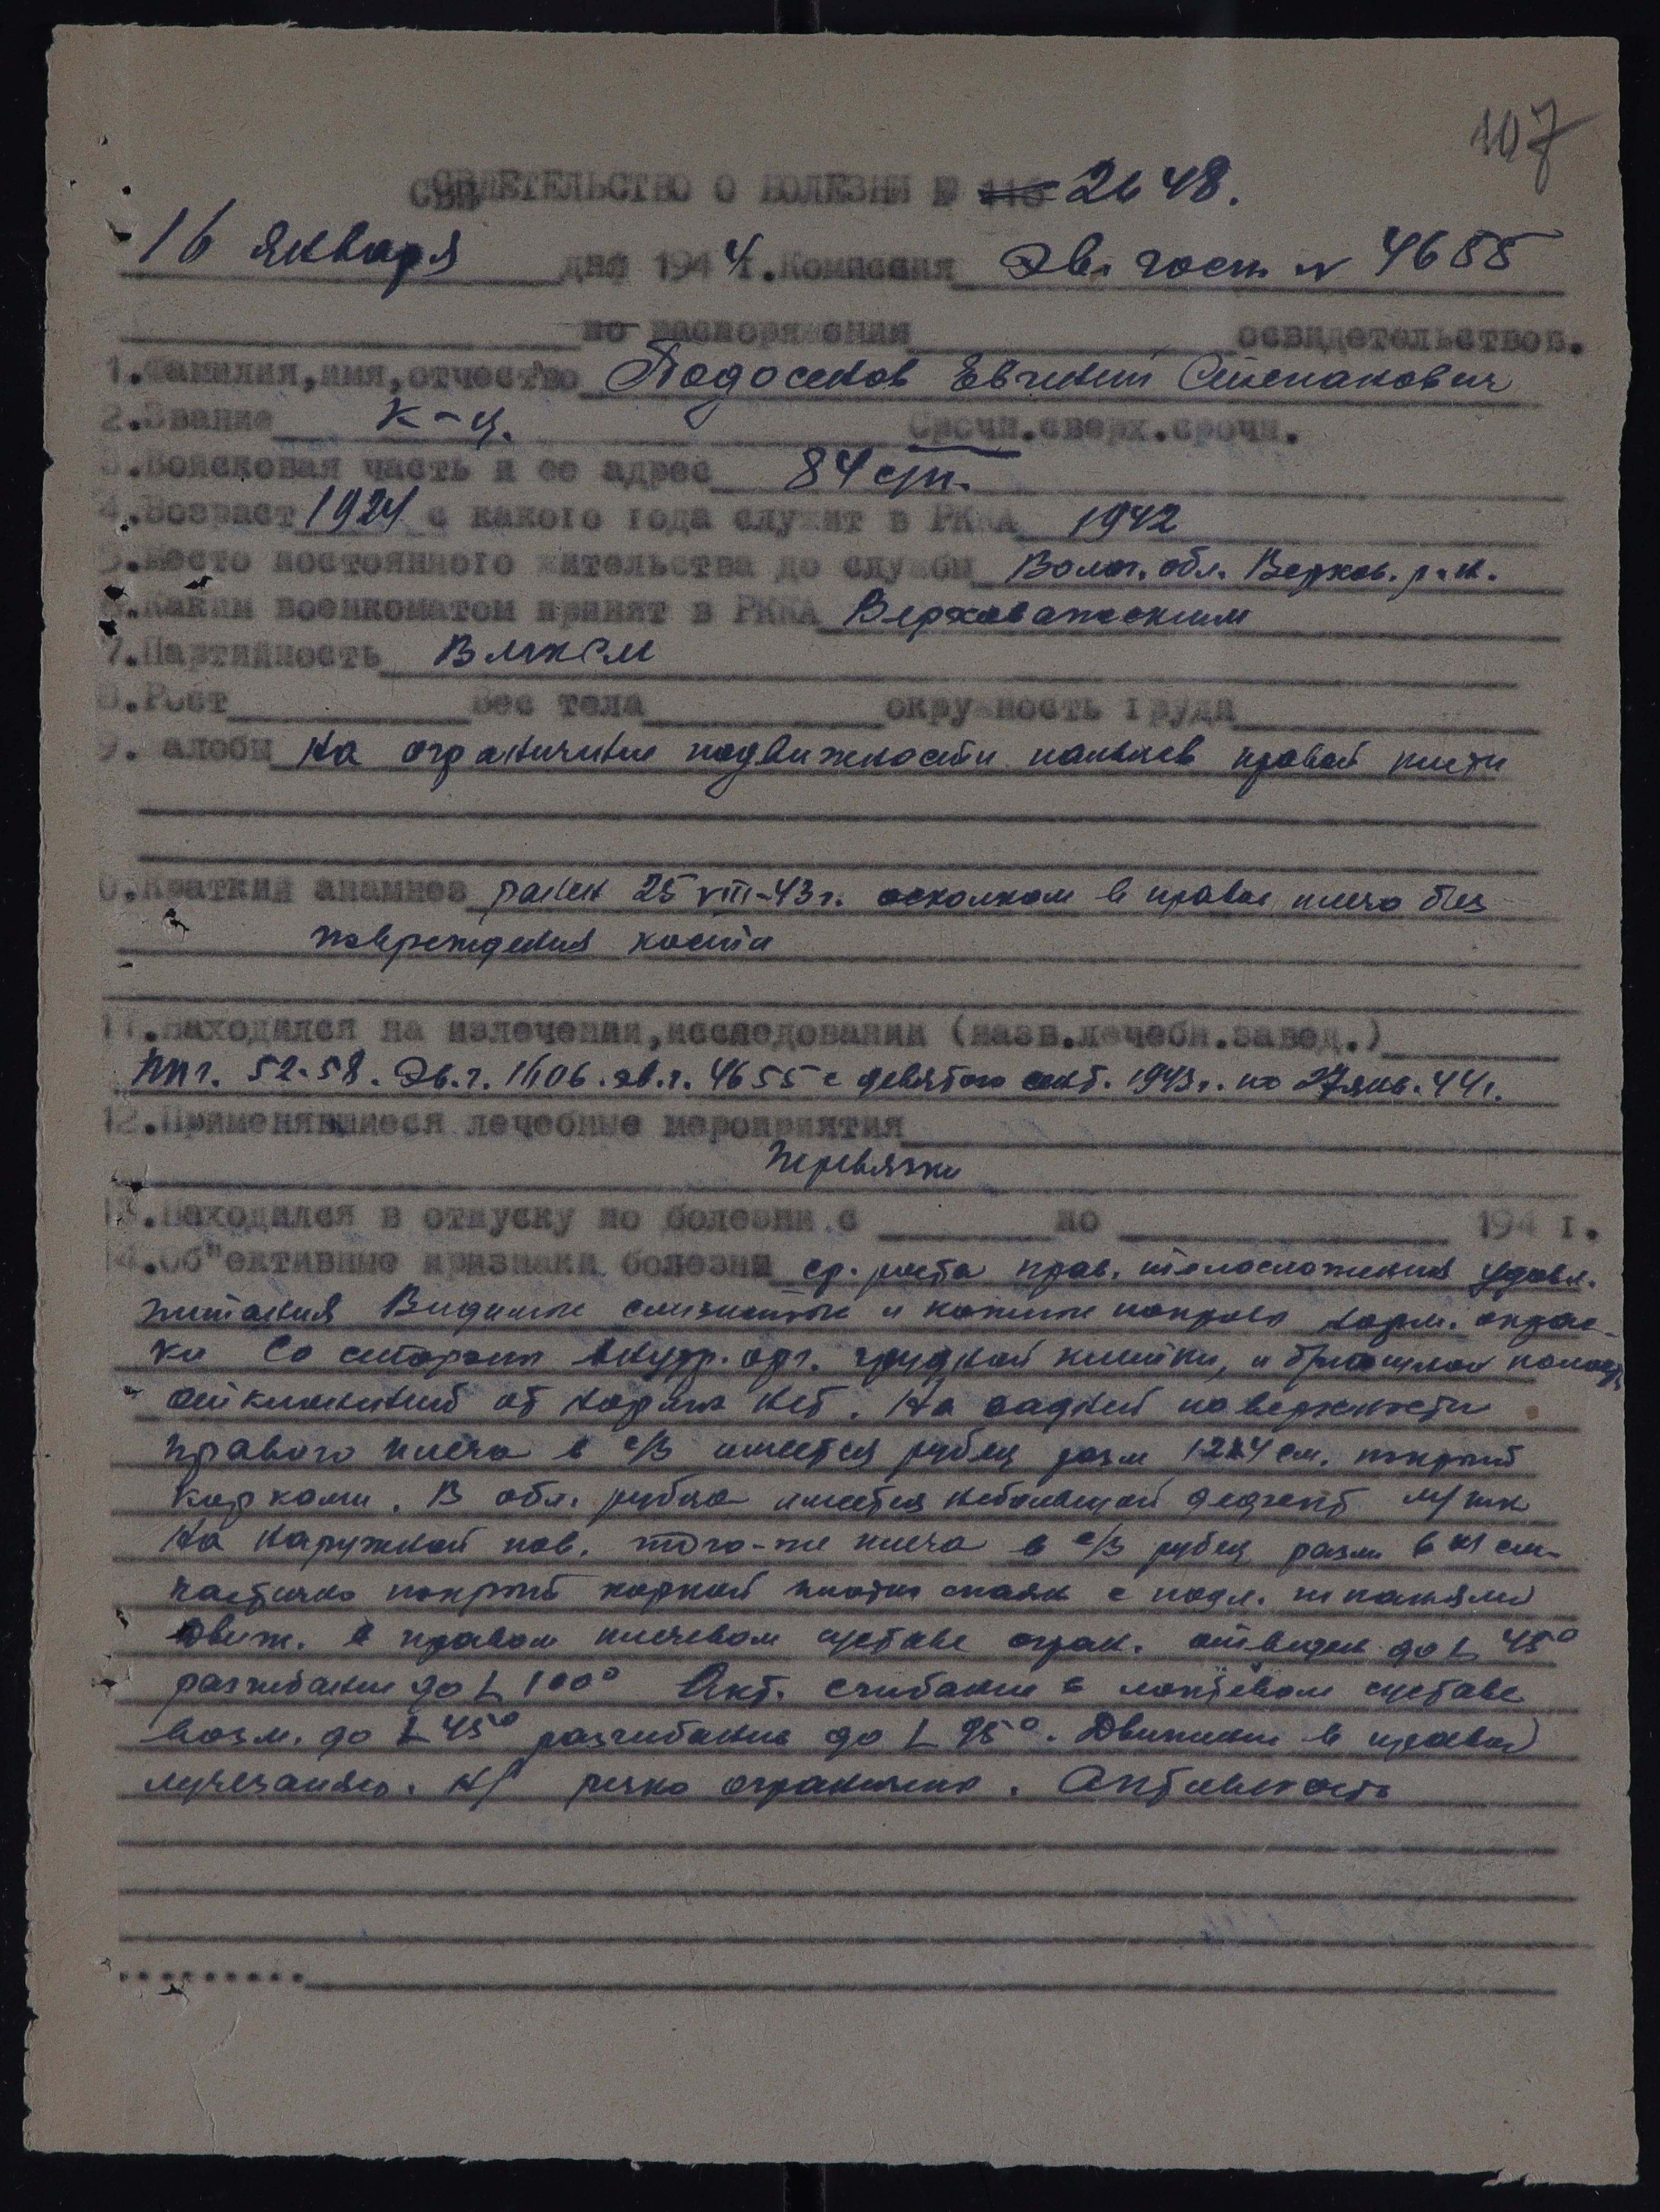 107
СВИДЕТЕЛЬСТВО О БОЛЕЗНИ № 2648.
16 января дня 1944 г. Комиссия Эв. госп. № 4655
по распоряжения освидетельствов.
1. Фамилия, имя, отчество Подосенов Евгений Степанович
2. Звание к-ц. Срочн. сверх. срочн.
3. Войсковая часть и ее адрес 84 сп.
4. Возраст 1924 с какого года служит в РККА 1942
5. Место постоянного жительства до службы Волог. обл. Верхов. р-н.
6. Каким военкоматом принят в РККА Верховажским
7. Партийность ВЛКСМ
8. Рост Вес тела окружность груди
9. алобы на ограничение подвижности пальцев правой кисти
0. Краткий анамнез ранен 25 VIII-43 г. осколком в правое плечо без
повреждения кости
11. Находился на излечении, исследовании (назв. лечебн. завед.)
ППГ. 52-58. Эв. г. 1606. эв. г. 4655 с девятого сент. 1943 г. по 27 янв. 44 г.
12. Применявшиеся лечебные мероприятия
Перевязки
13. Находился в отпуску по болезни с по 194 г.
14. Об"ективные признаки болезни ср. роста прав. телосложения удовл.
питания Видимые слизистые и кожные покровы норм. окрас-
ки Со стороны внутр. орг. грудной клетки, и брюшной полост
отклонений от нормы нет. На задней поверхности
правого плеча в с/3 имеется рубец разм 12х4 см. покрыт
корками. В обл. рубца имеется небольшой дефект м/тк
На наружной пов. того-же плеча в с/3 рубец разм см.
частично покрыт коркой плотно спаян с подл. тканями
Движ. в правом плечевом суставе огран. отведен до L 45°
разгибание до L 100° Акт. сгибание в локтевом суставе
возм. до L 45° разгибание до L 95°. Движение в правом
лучезапяс. резко ограничено. Активность